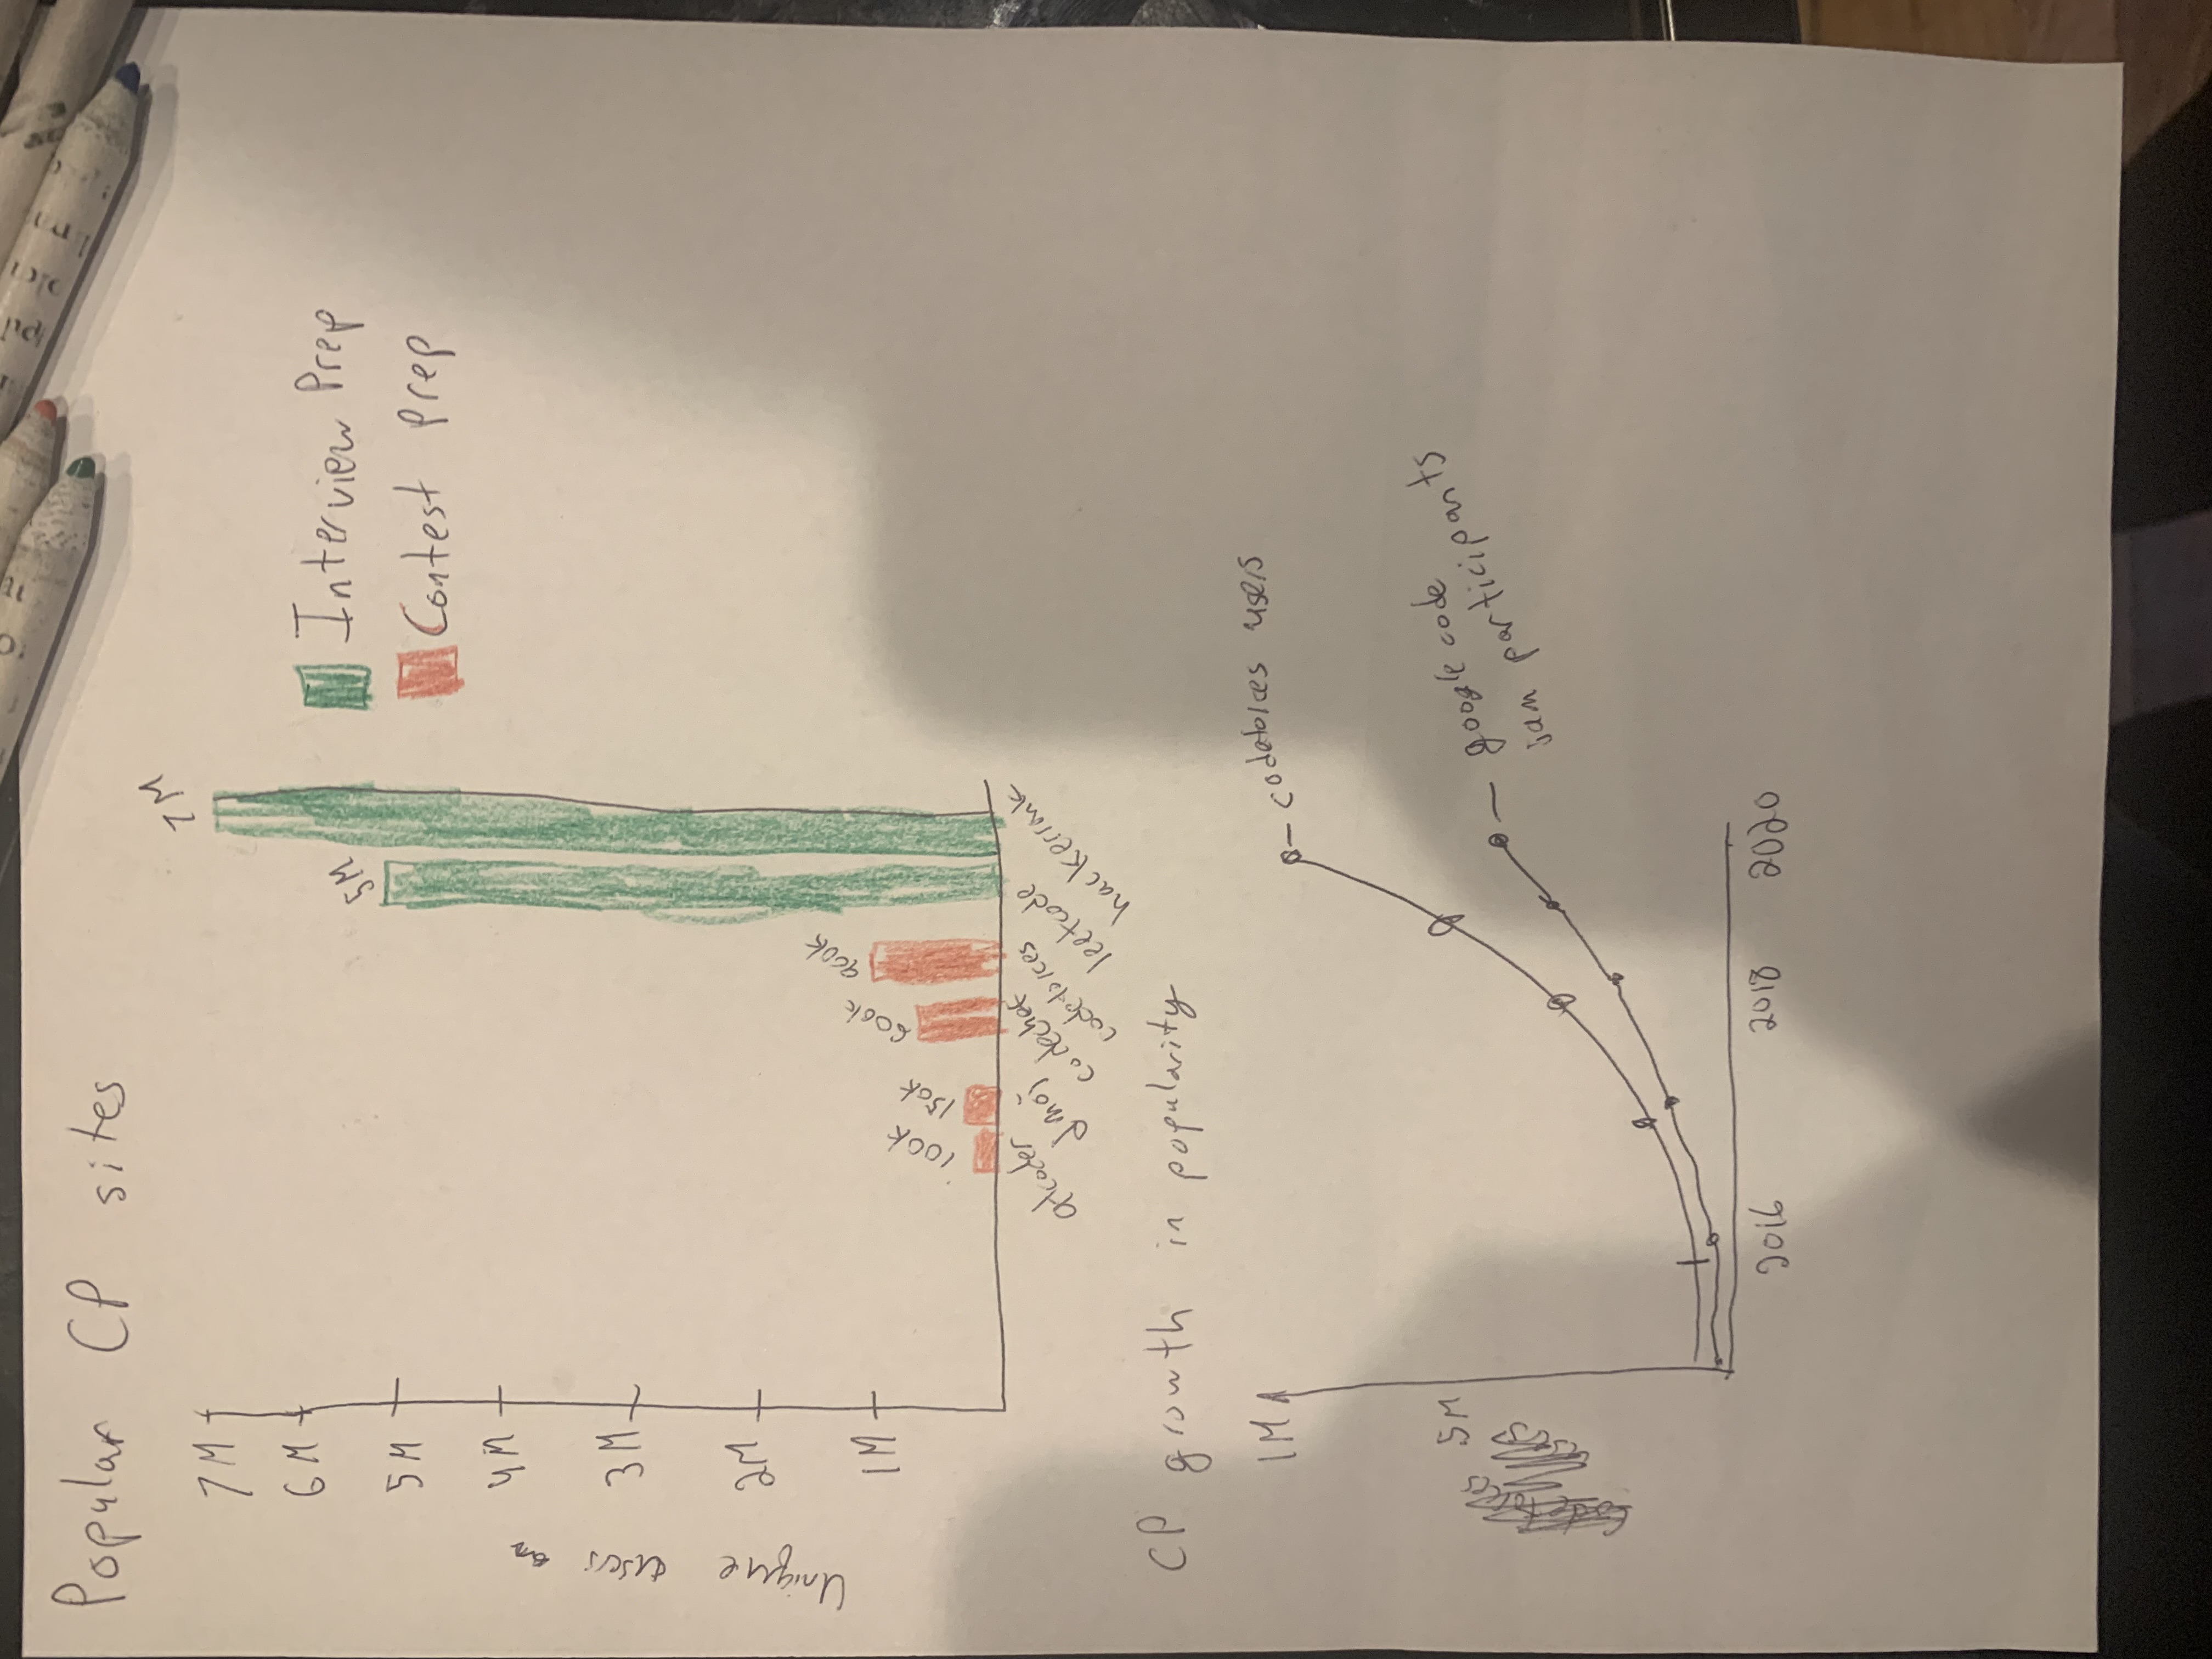 Popular CP sites
7M
6M
5M
4M
3M
2M
1M
Unique users on
100k
150k
600k
900k
5M
7M
atcoder
dmoj
codechef
codeforces
leetcode
hackerrank
Interview Prep
Contest Prep
CP growth in popularity
1M
5M
codeforces users
google code
jam participants
2016
2018
2020